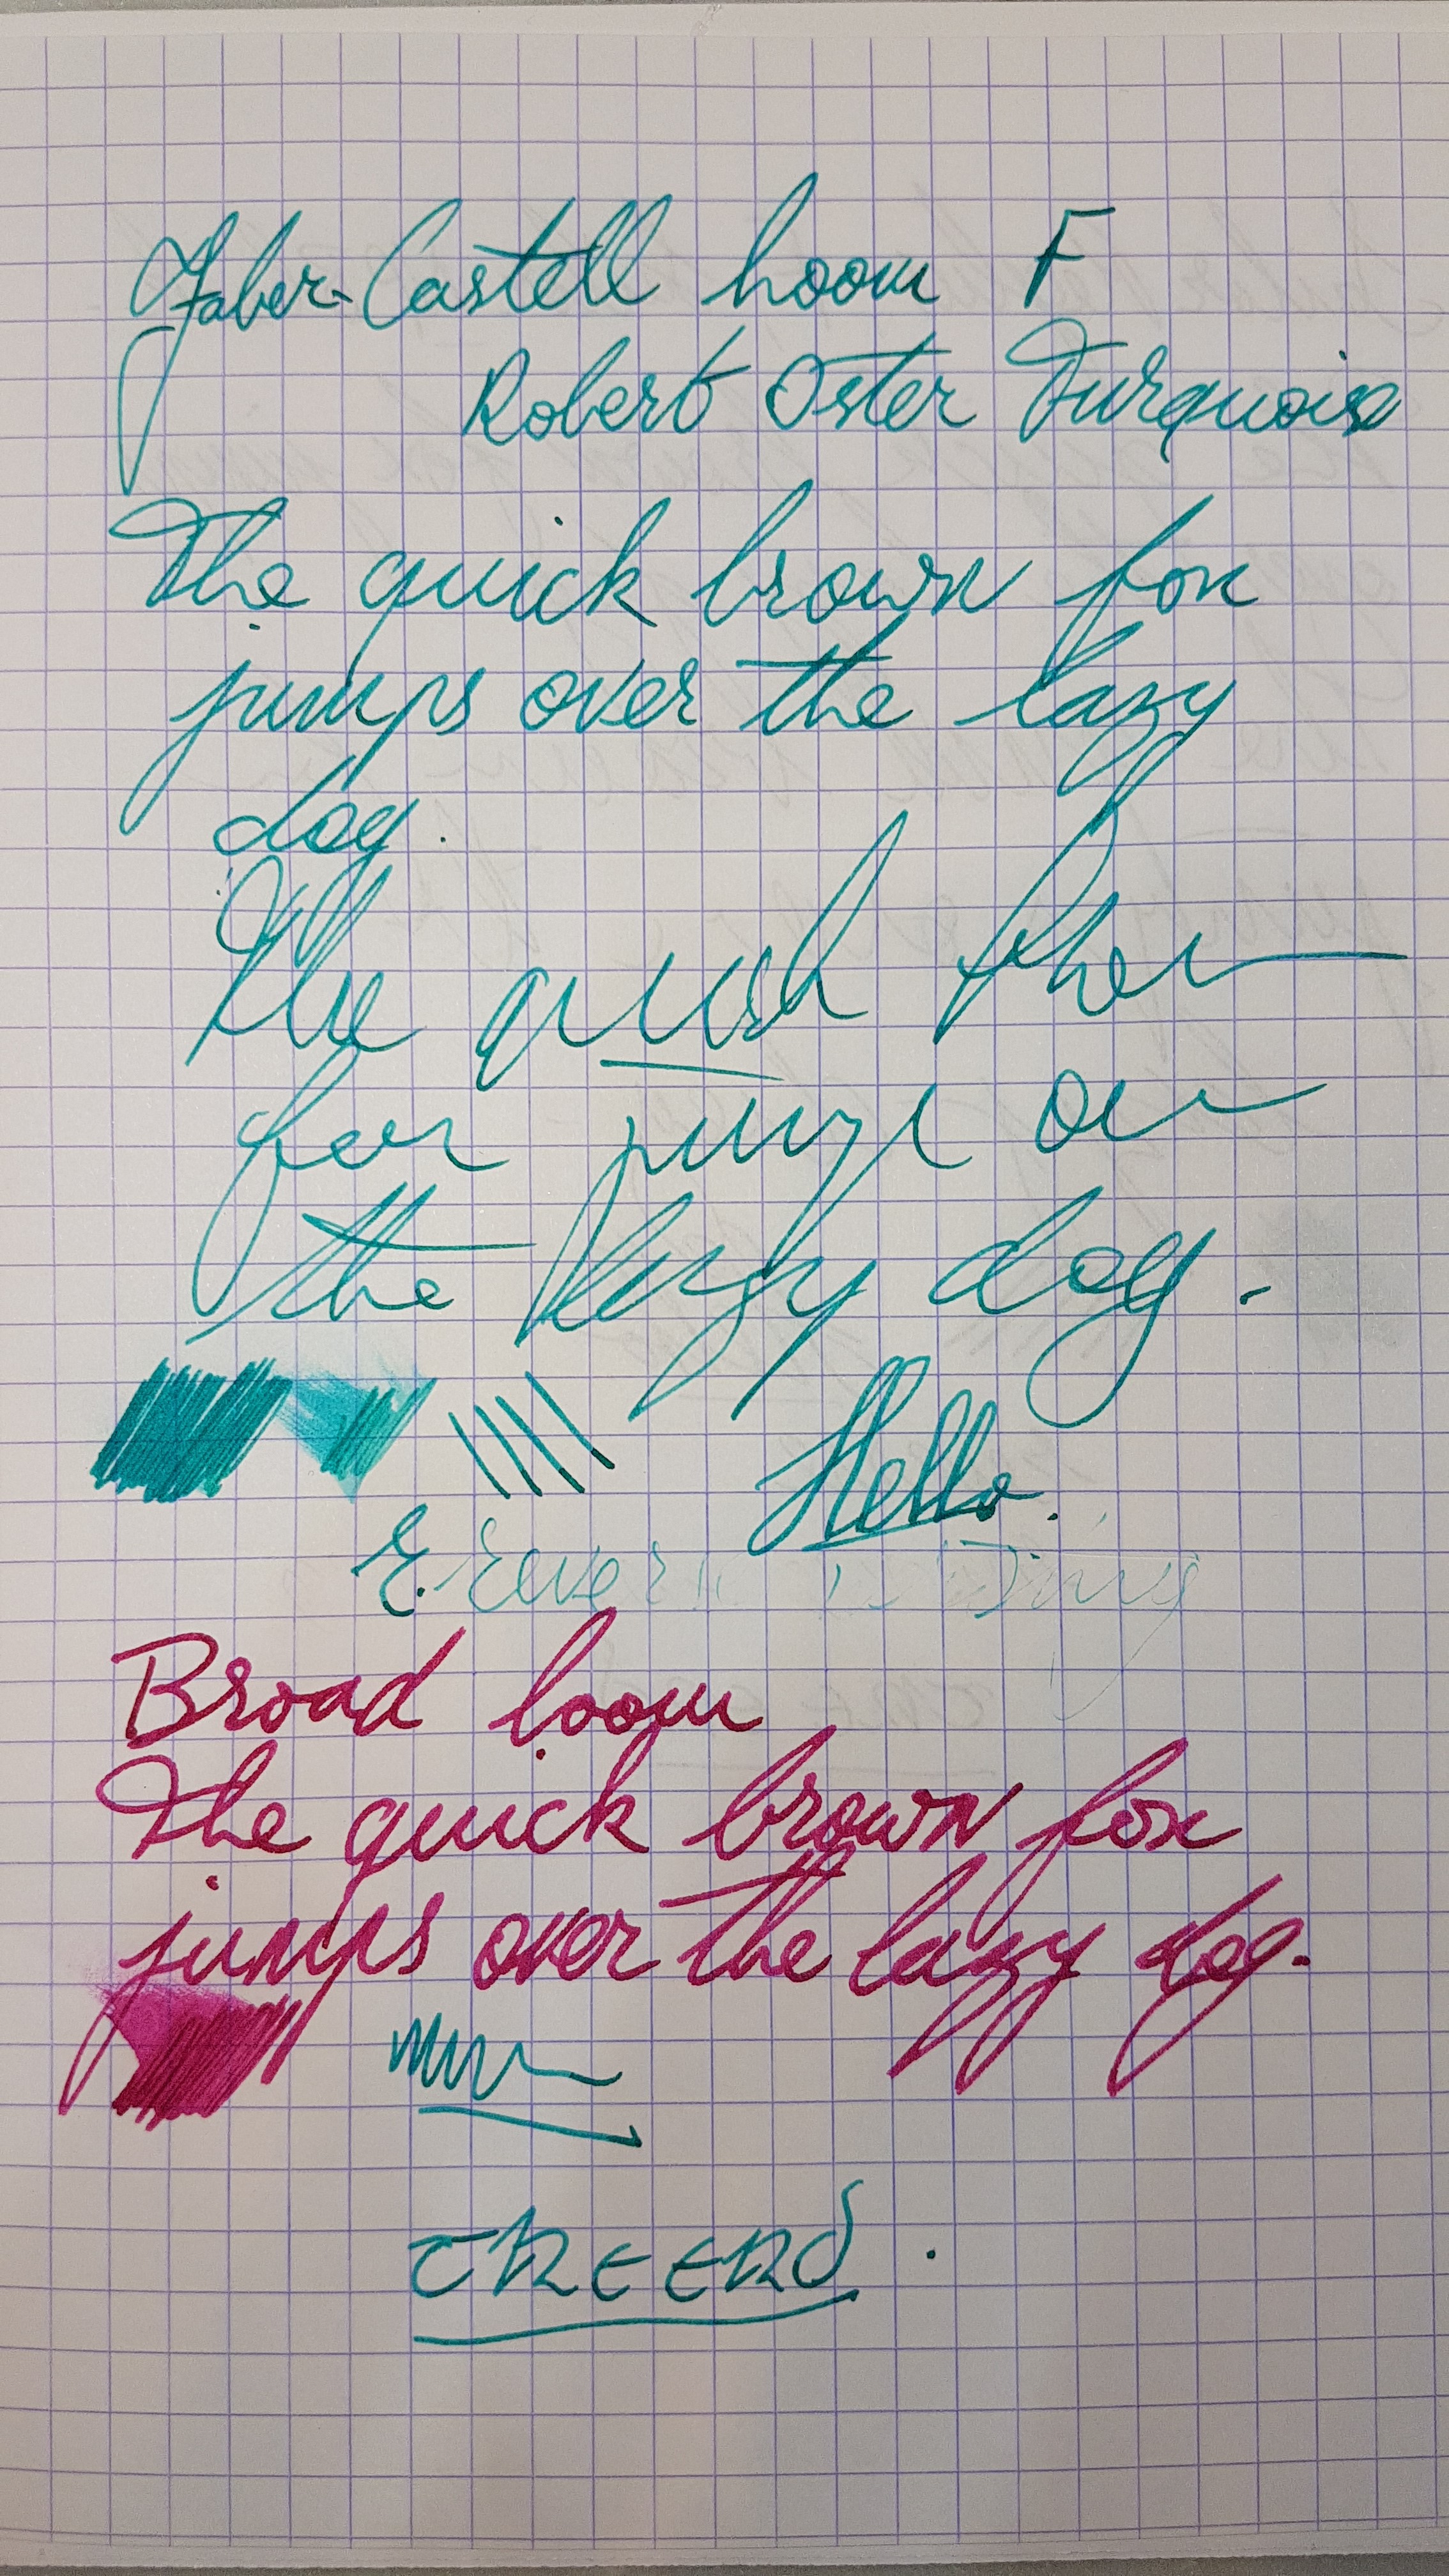 Faber-Castell loom F
Robert Oster Turquoise
The quick brown fox
jumps over the lazy
dog.
The quick
fox over
the lazy dog.
Hello.
E. Reverse writing
Broad loom
The quick brown fox
jumps over the lazy dog.